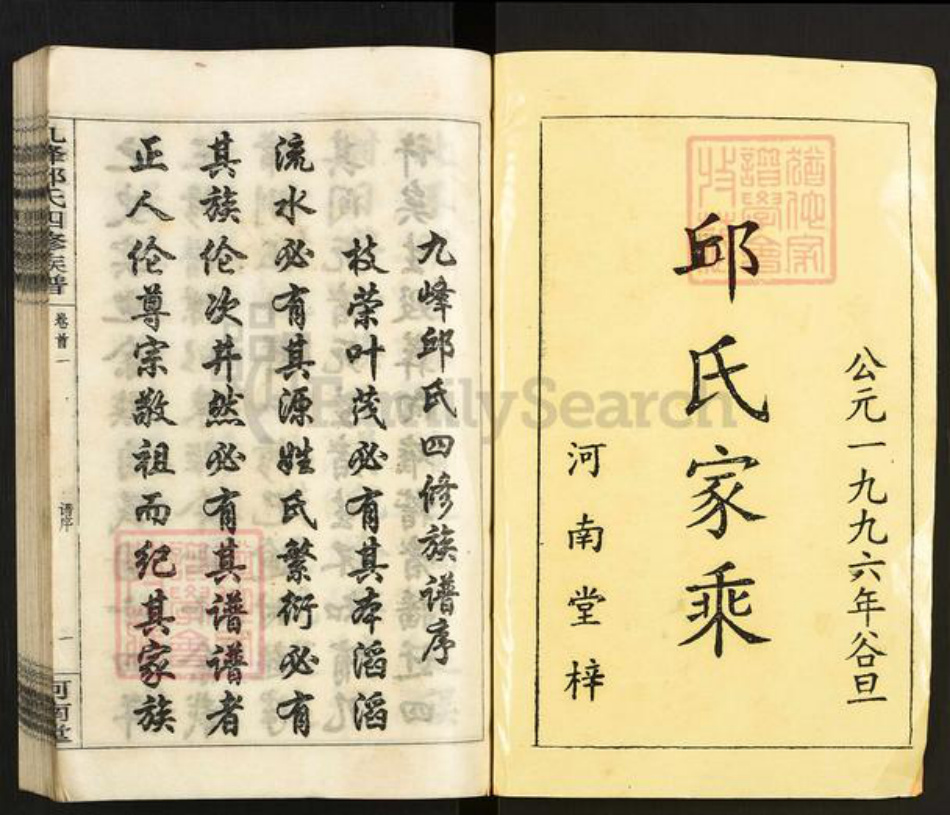 公元一九九六年谷旦
邱氏家乘
河南堂梓
九峰邱氏四修族谱序
枝荣叶茂必有其本滔滔
流水必有其源姓氏繁衍必有
其族伦次井然必有其谱谱者
正人伦尊宗敬祖而纪其家族
九峰邱氏四修族谱
卷首一
谱序
一
河南堂
FamilySearch